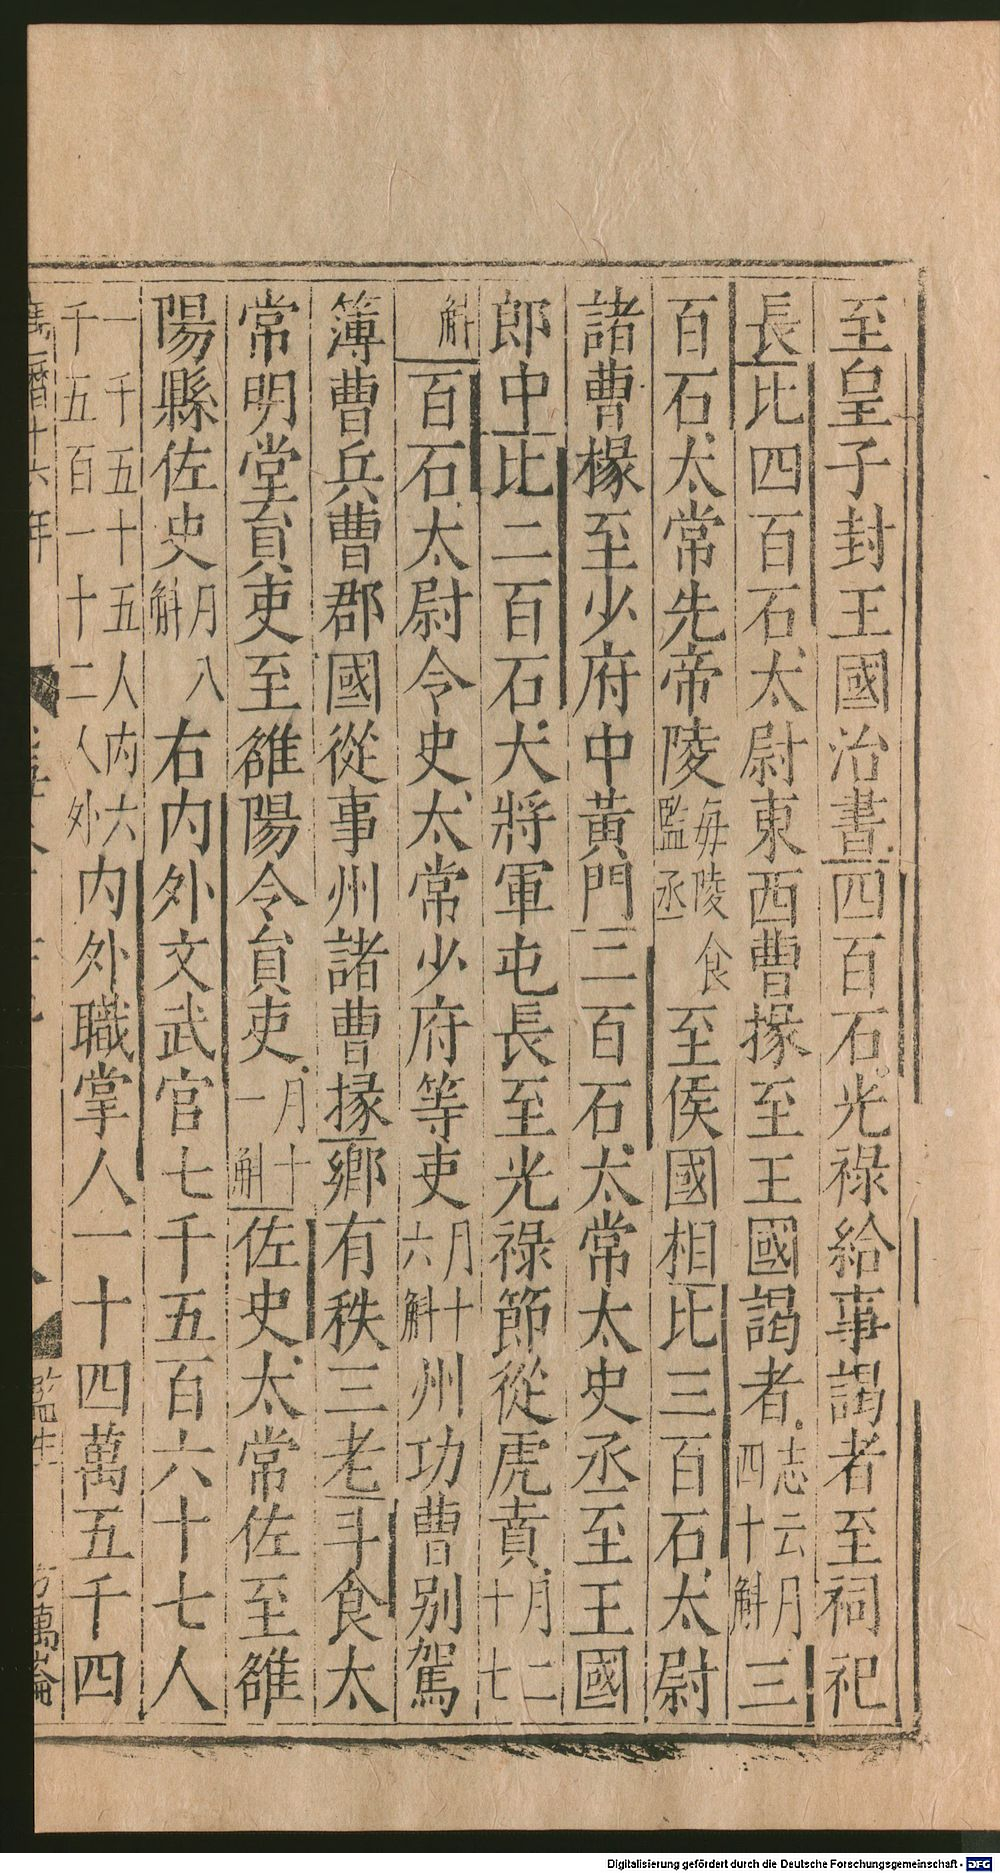 至皇子封王國治書四百石光祿給事謁者至祠祀
長比四百石太尉東西曹掾至王國謁者志云月四十斛三
百石太常先帝陵每陵食監丞至侯國相比三百石太尉
諸曹掾至少府中黃門二百石太常太史丞至王國
郎中比二百石大將軍屯長至光祿節從虎賁月二十七
斛百石太尉令史太常少府等吏月十六斛州功曹別駕
簿曹兵曹郡國從事州諸曹掾鄉有秩三老斗食太
常明堂員吏至雒陽令員吏月十一斛佐史太常佐至雒
陽縣佐史月八斛右內外文武官七千五百六十七人
一千五十五人內六千五百一十二人外內外職掌人一十四萬五千四
萬曆十六年
監生
萬崙
Digitalisierung gefördert durch die Deutsche Forschungsgemeinschaft - DFG